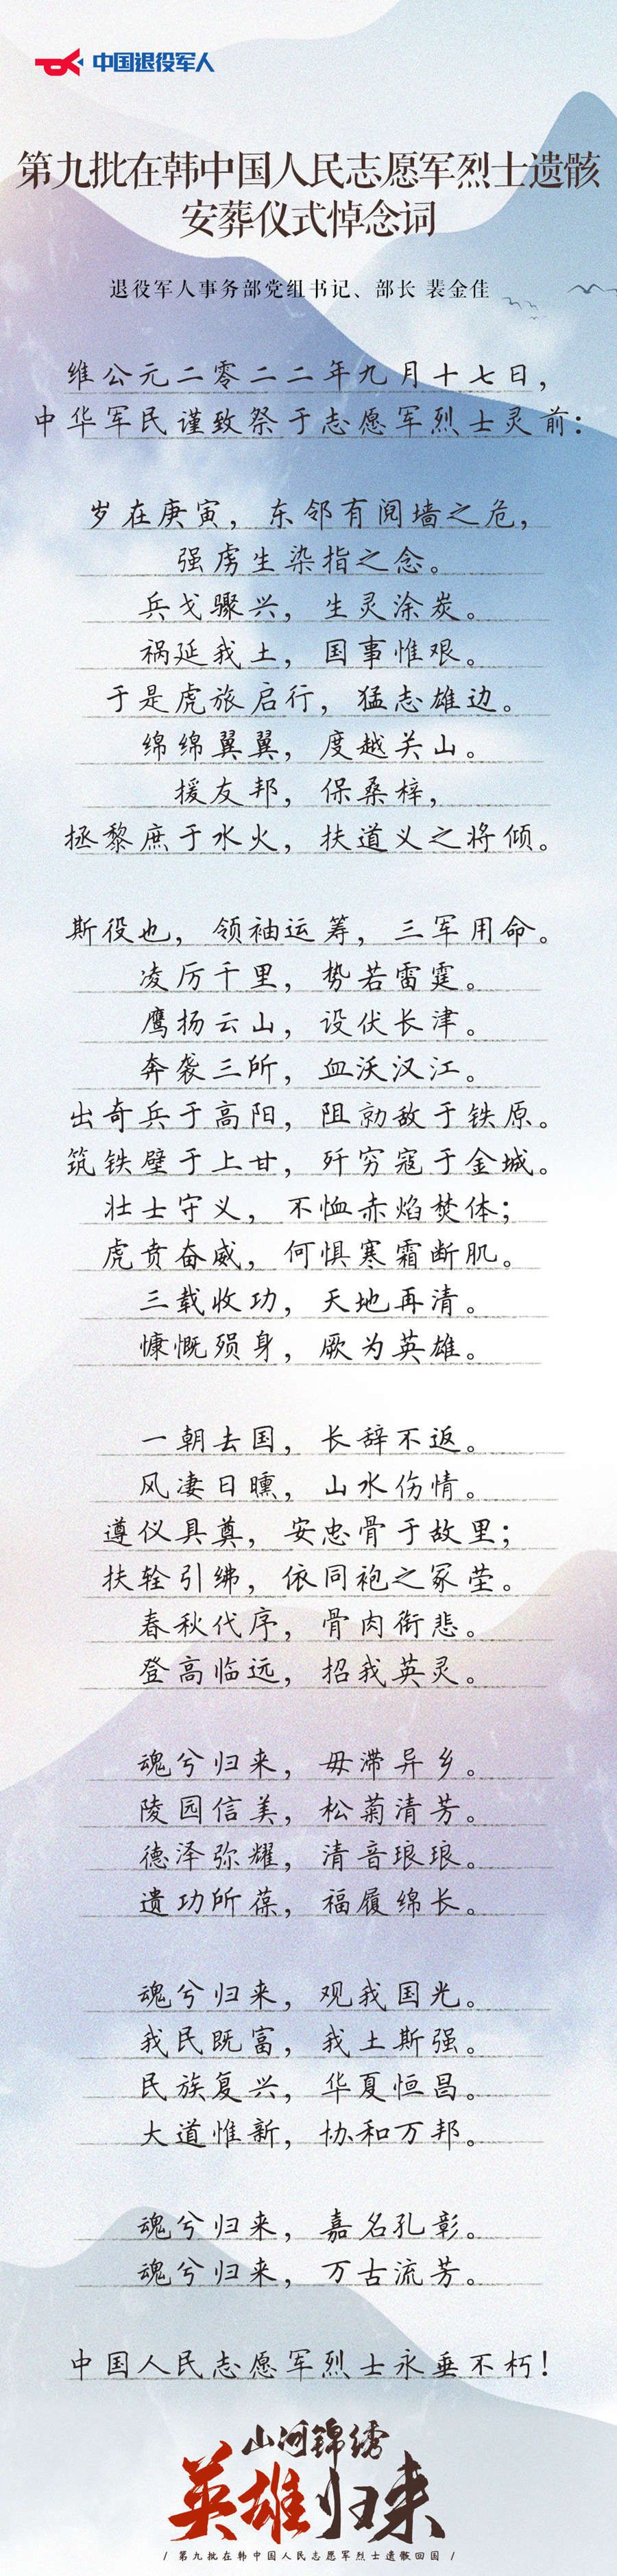 中国退役军人
第九批在韩中国人民志愿军烈士遗骸
安葬仪式悼念词
退役军人事务部党组书记、部长 裴金佳
维公元二零二二年九月十七日，
中华军民谨致祭于志愿军烈士灵前：
岁在庚寅，东邻有阋墙之危，
强虏生染指之念。
兵戈骤兴，生灵涂炭。
祸延我土，国事惟艰。
于是虎旅启行，猛志雄边。
绵绵翼翼，度越关山。
援友邦，保桑梓，
拯黎庶于水火，扶道义之将倾。
斯役也，领袖运筹，三军用命。
凌厉千里，势若雷霆。
鹰扬云山，设伏长津。
奔袭三所，血沃汉江。
出奇兵于高阳，阻勍敌于铁原。
筑铁壁于上甘，歼穷寇于金城。
壮士守义，不恤赤焰焚体；
虎贲奋威，何惧寒霜断肌。
三载收功，天地再清。
慷慨殒身，厥为英雄。
一朝去国，长辞不返。
风凄日曛，山水伤情。
遵仪具奠，安忠骨于故里；
扶辁引绋，依同袍之冢茔。
春秋代序，骨肉衔悲。
登高临远，招我英灵。
魂兮归来，毋滞异乡。
陵园信美，松菊清芳。
德泽弥耀，清音琅琅。
遗功所葆，福履绵长。
魂兮归来，观我国光。
我民既富，我土斯强。
民族复兴，华夏恒昌。
大道惟新，协和万邦。
魂兮归来，嘉名孔彰。
魂兮归来，万古流芳。
中国人民志愿军烈士永垂不朽！
山河锦绣
英雄归来
/ 第九批在韩中国人民志愿军烈士遗骸回国 /